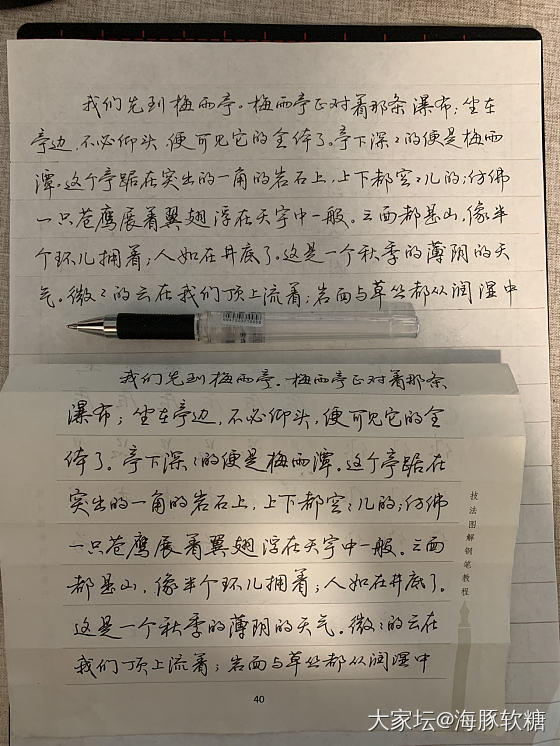 我们先到梅雨亭。梅雨亭正对着那条瀑布;坐在
亭边,不必仰头,便可见它的全体了。亭下深々的便是梅雨
潭。这个亭踞在突出的一角的岩石上,上下都空々儿的;仿佛
一只苍鹰展着翼翅浮在天宇中一般。三面都是山,像半
个环儿拥着;人如在井底了。这是一个秋季的薄阴的天
气。微々的云在我们顶上流着;岩面与草丛都从润湿中
我们先到梅雨亭。梅雨亭正对着那条
瀑布;坐在亭边,不必仰头,便可见它的全
体了。亭下深々的便是梅雨潭。这个亭踞在
突出的一角的岩石上,上下都空々儿的;仿佛
一只苍鹰展着翼翅浮在天宇中一般。三面
都是山,像半个环儿拥着;人如在井底了。
这是一个秋季的薄阴的天气。微々的云在
我们顶上流着;岩面与草丛都从润湿中
技法图解钢笔教程
40
大家坛@海豚软糖